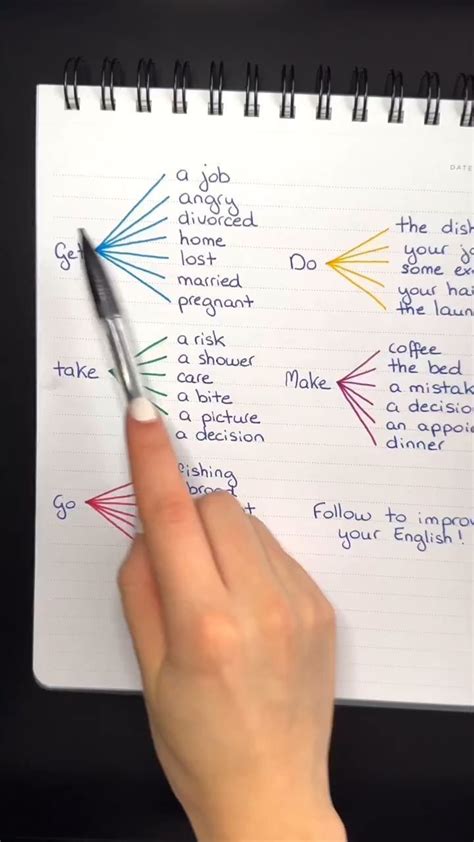 DATE
Get
a job
angry
divorced
home
lost
married
pregnant
Do
the dish
your jo
some ex
your hai
the laun
take
a risk
a shower
care
a bite
a picture
a decision
Make
coffee
the bed
a mistak
a decisio
an appoi
dinner
Go
fishing
Follow to impro
your English!